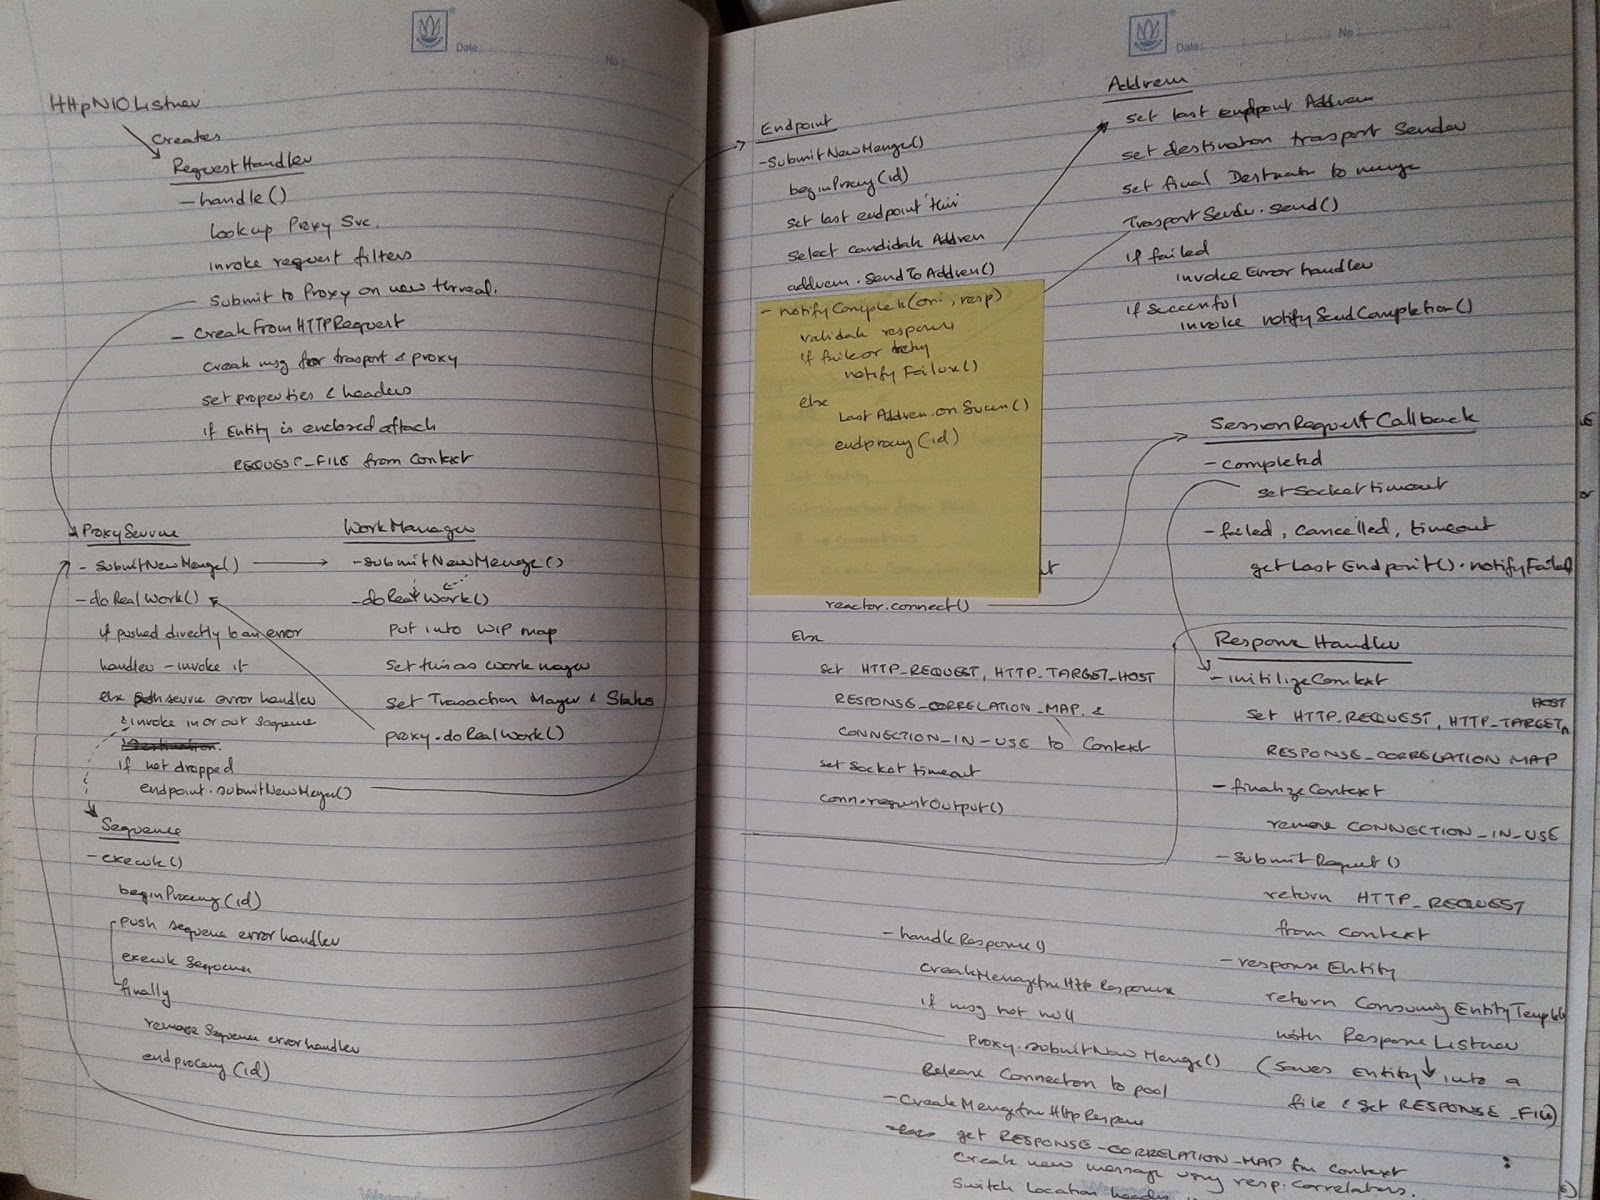 Date
No
HttpNIOListner
creates
RequestHandler
- handle()
Lookup Proxy Svc.
invoke request filters
Submit to Proxy on new thread.
- CreateFromHTTPRequest
Create msg for trasport & proxy
set properties & headers
if Entity is enclosed attach
REQUEST_FILE from Context
ProxyService
- SubmitNewMessage()
- doRealWork()
if pushed directly to an error
handler - invoke it
else push service error handler
& invoke in or out sequence
Destination
if not dropped
endpoint.submitNewMessage()
WorkManager
- submitNewMessage()
- doRealWork()
Put into WIP map
Set this as work manager
set Trasaction Manager & States
proxy.doRealWork()
Sequence
- execute()
beginProcessing(id)
push sequence error handler
execute Sequence
finally
remove Sequence error handler
endProcessing(id)
Date:
No:
Endpoint
- SubmitNewMessage()
beginProcessing(id)
set last endpoint 'this'
select candidate Address
address.sendToAddress()
- notifyComplete(ori, resp)
validate response
if fail or retry
notifyFailure()
else
Last Address.onSuccess()
endprocessing(id)
reactor.connect()
Else
set HTTP_REQUEST, HTTP_TARGET_HOST
RESPONSE_CORRELATION_MAP &
CONNECTION_IN_USE to Context
set Socket timeout
conn.requestOutput()
Address
set last endpoint Address
set destination trasport Sender
set final Destination to message
TrasportSender.send()
if failed
invoke Error handler
if Successful
invoke notifySendCompletion()
SessionRequestCallback
- completed
set Socket timeout
- failed, cancelled, timeout
getLastEndpoint().notifyFailed
ResponseHandler
- initilizeContext
HOST
Set HTTP_REQUEST, HTTP_TARGET
RESPONSE_CORRELATION MAP
- finalizeContext
remove CONNECTION_IN_USE
- SubmitRequest()
return HTTP_REQUEST
from Context
- response Entity
return ConsumingEntityTemplate
with Response Listner
(Saves Entity into a
file & set RESPONSE_FILE)
- handleResponse()
CreateMessageFromHttpResponse
if msg not null
Proxy.submitNewMessage()
Release Connection to pool
- CreateMessageFromHttpResponse
get RESPONSE_CORRELATION_MAP frm Context
Create new message using resp. correlators.
Switch Location header